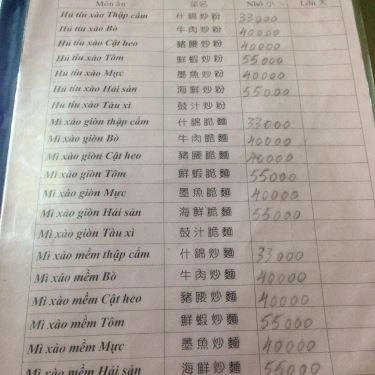 Món ăn 菜名 Nhỏ 小 Lớn 大
Hủ tíu xào Thập cẩm 什錦炒粉 33000
Hủ tíu xào Bò 牛肉炒粉 40000
Hủ tíu xào Cật heo 豬腰炒粉 40000
Hủ tíu xào Tôm 鮮蝦炒粉 55000
Hủ tíu xào Mực 墨魚炒粉 40000
Hủ tíu xào Hải sản 海鮮炒粉 55000
Hủ tíu xào Tàu xì 豉汁炒粉
Mì xào giòn thập cẩm 什錦脆麵 33000
Mì xào giòn Bò 牛肉脆麵 40000
Mì xào giòn Cật heo 豬腰脆麵 40000
Mì xào giòn Tôm 鮮蝦脆麵 55000
Mì xào giòn Mực 墨魚脆麵 40000
Mì xào giòn Hải sản 海鮮脆麵 55000
Mì xào giòn Tàu xì 豉汁脆麵
Mì xào mềm thập cẩm 什錦炒麵 33000
Mì xào mềm Bò 牛肉炒麵 40000
Mì xào mềm Cật heo 豬腰炒麵 40000
Mì xào mềm Tôm 鮮蝦炒麵 55000
Mì xào mềm Mực 墨魚炒麵 40000
Mì xào mềm Hải sản 海鮮炒麵 55000